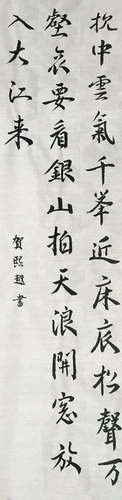 枕中雲氣千峯近床底松聲万
壑哀要看銀山拍天浪開窓放
入大江来
賀熙越書